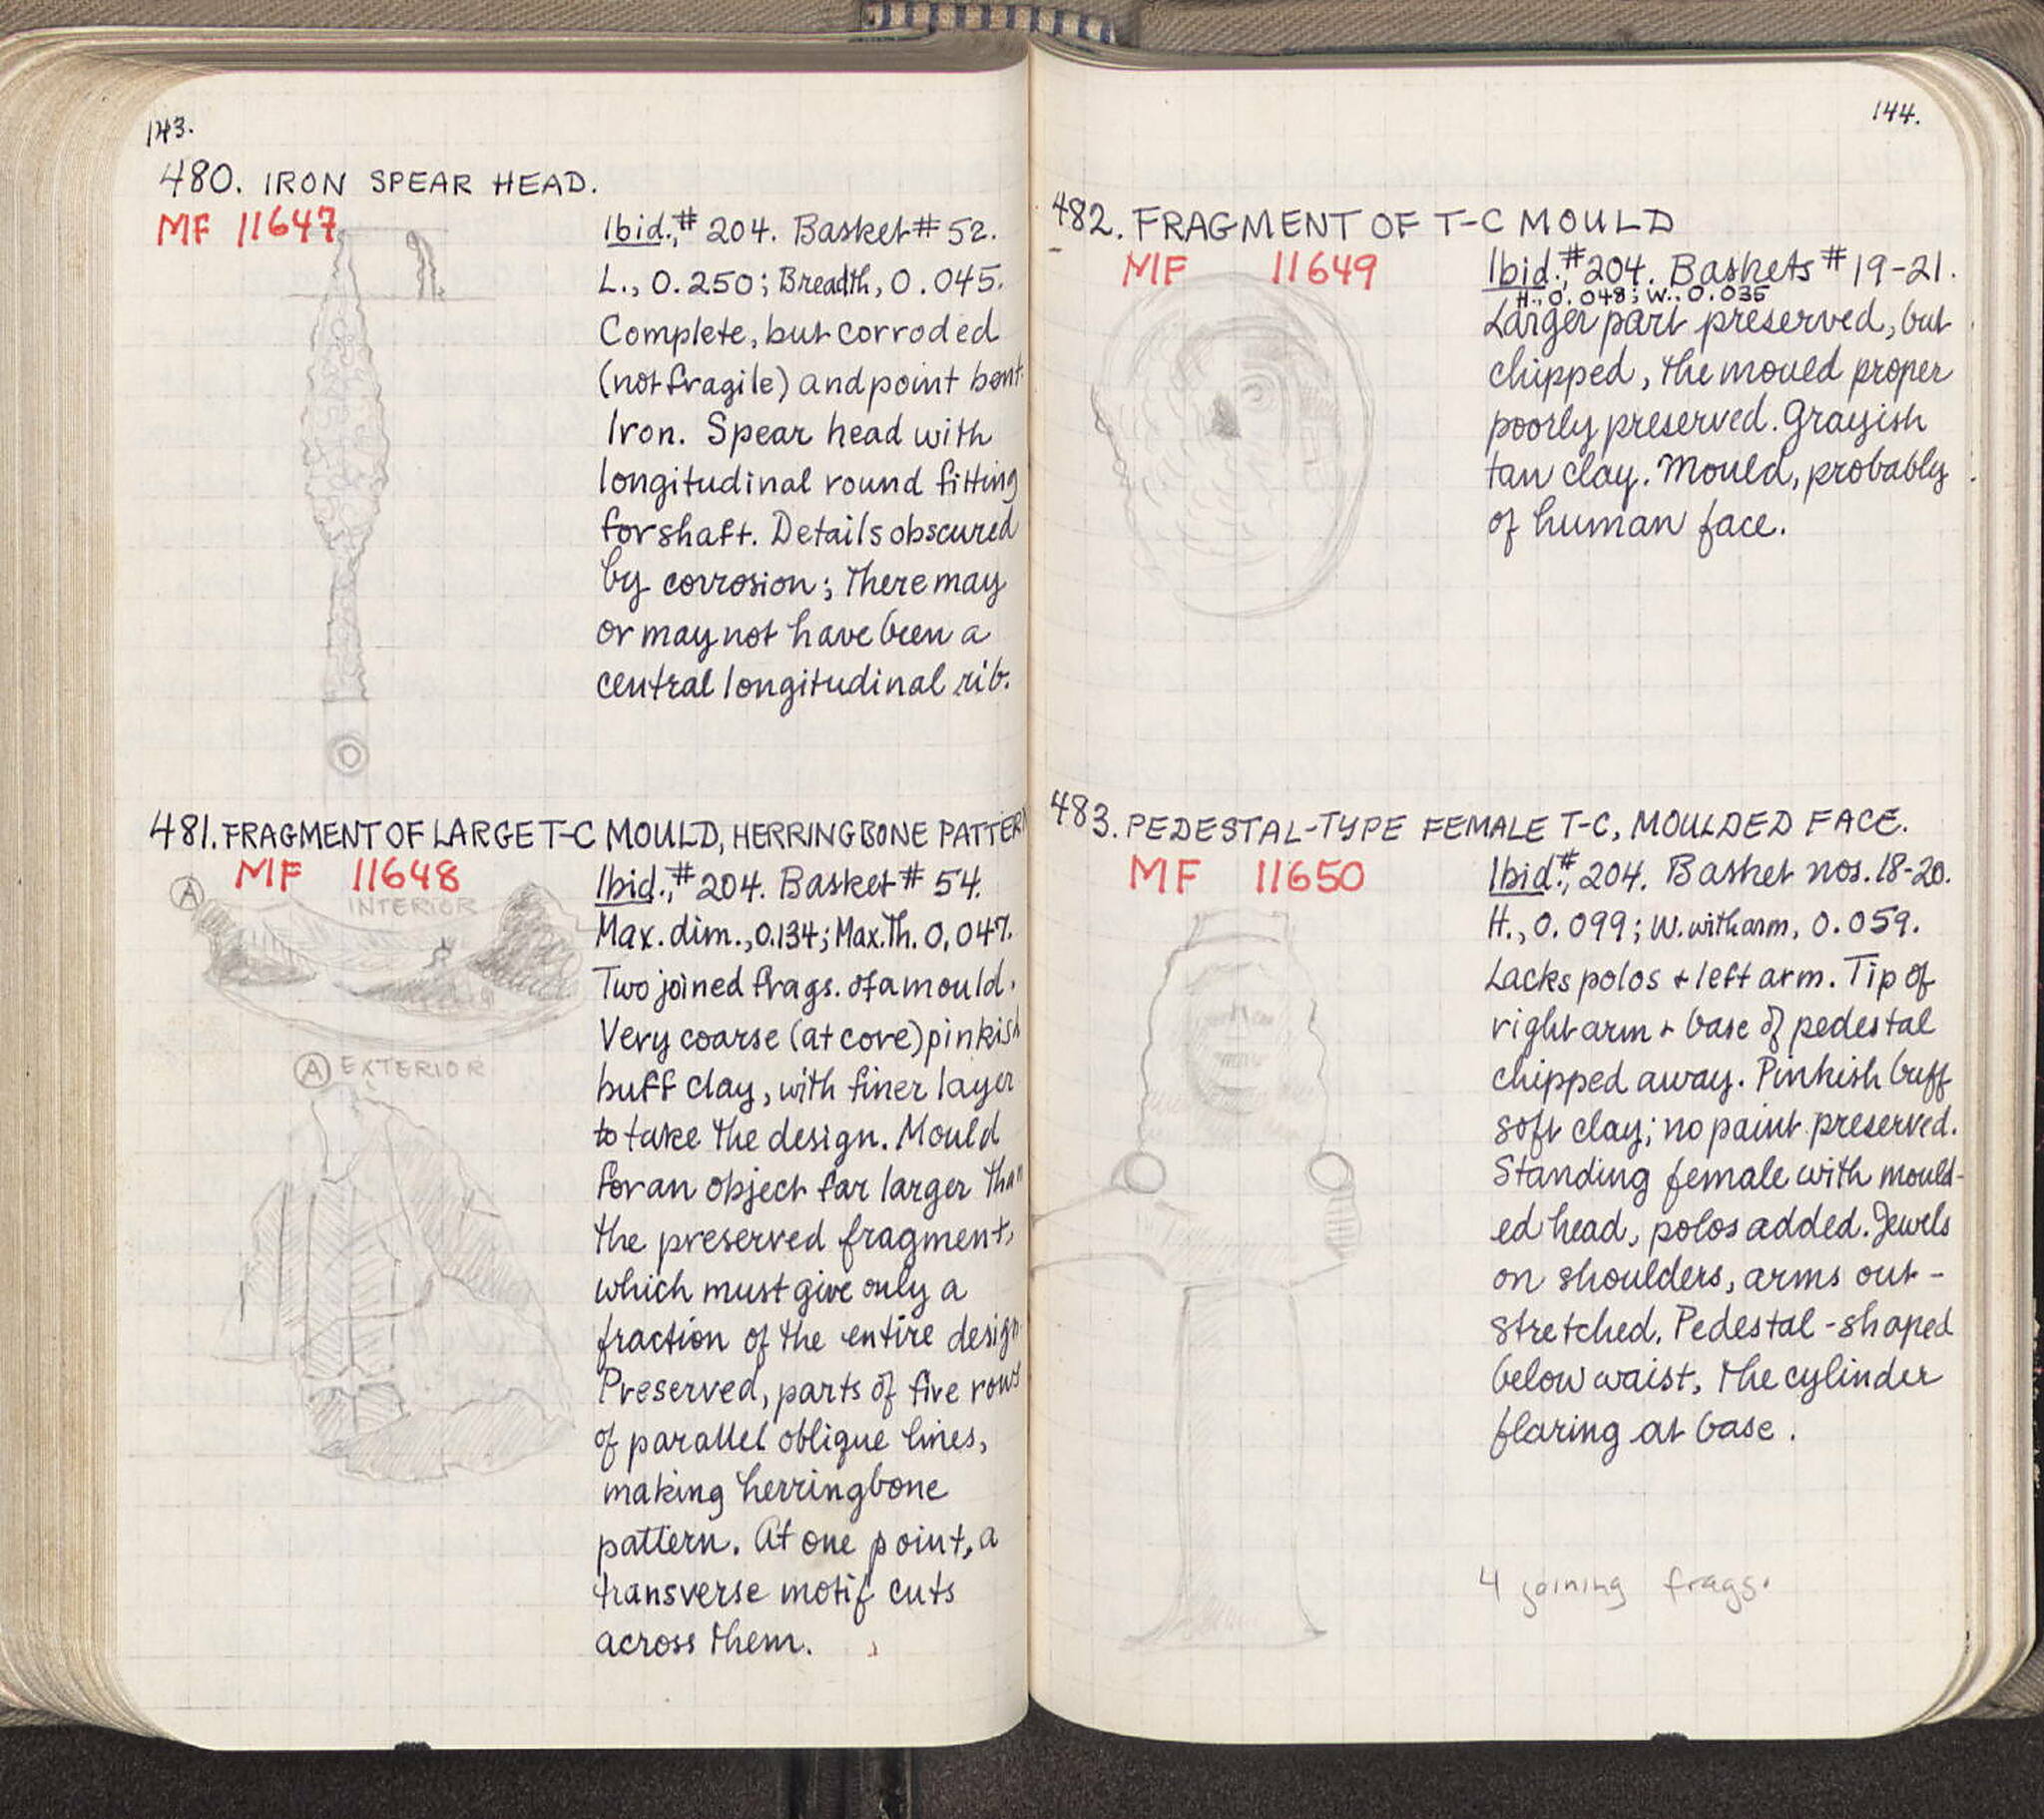 143.
480. IRON SPEAR HEAD.
MF 11647
Ibid., # 204. Basket # 52.
L., 0.250; Breadth, 0.045.
Complete, but corroded
(not fragile) and point bent.
Iron. Spear head with
longitudinal round fitting
for shaft. Details obscured
by corrosion; there may
or may not have been a
central longitudinal rib.
481. FRAGMENT OF LARGE T-C MOULD, HERRINGBONE PATTERN
MF 11648
A
INTERIOR
A EXTERIOR
Ibid., # 204. Basket # 54.
Max. dim., 0.134; Max. Th. 0,047.
Two joined frags. of a mould.
Very coarse (at core) pinkish
buff clay, with finer layer
to take the design. Mould
for an object far larger than
the preserved fragment,
which must give only a
fraction of the entire design.
Preserved, parts of five rows
of parallel oblique lines,
making herringbone
pattern. At one point, a
transverse motif cuts
across them.
144.
482. FRAGMENT OF T-C MOULD
MF 11649
Ibid., # 204. Baskets # 19-21.
H., 0.048; W., 0.035
Larger part preserved, but
chipped, the mould proper
poorly preserved. Grayish
tan clay. Mould, probably
of human face.
483. PEDESTAL-TYPE FEMALE T-C, MOULDED FACE.
MF 11650
Ibid., # 204. Basket nos. 18-20.
H., 0.099; W. with arm, 0.059.
Lacks polos + left arm. Tip of
right arm + base of pedestal
chipped away. Pinkish buff
soft clay; no paint preserved.
Standing female with mould-
ed head, polos added. Jewels
on shoulders, arms out-
stretched. Pedestal-shaped
below waist, the cylinder
flaring at base.
4 joining frags.